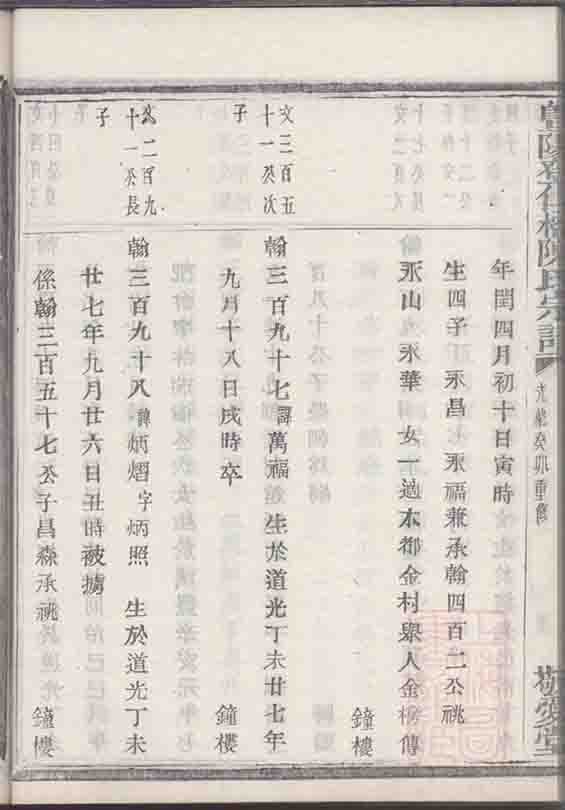 陳氏宗譜
光緒癸卯重修
年閏四月初十日寅時
生四子 永昌 永福兼承翰四百二公祧
永山 永華 女一適本都金村舉人金 傳
鐘樓
文三百五
十一公次
子
翰三百九十七諱萬福 生於道光丁未廿七年
九月十八日戌時卒
鐘樓
文二百九
十一公長
子
翰三百九十八諱炳熠字炳照 生於道光丁未
廿七年九月廿六日丑時被擄
係翰三百五十七公子昌森承祧 鐘樓